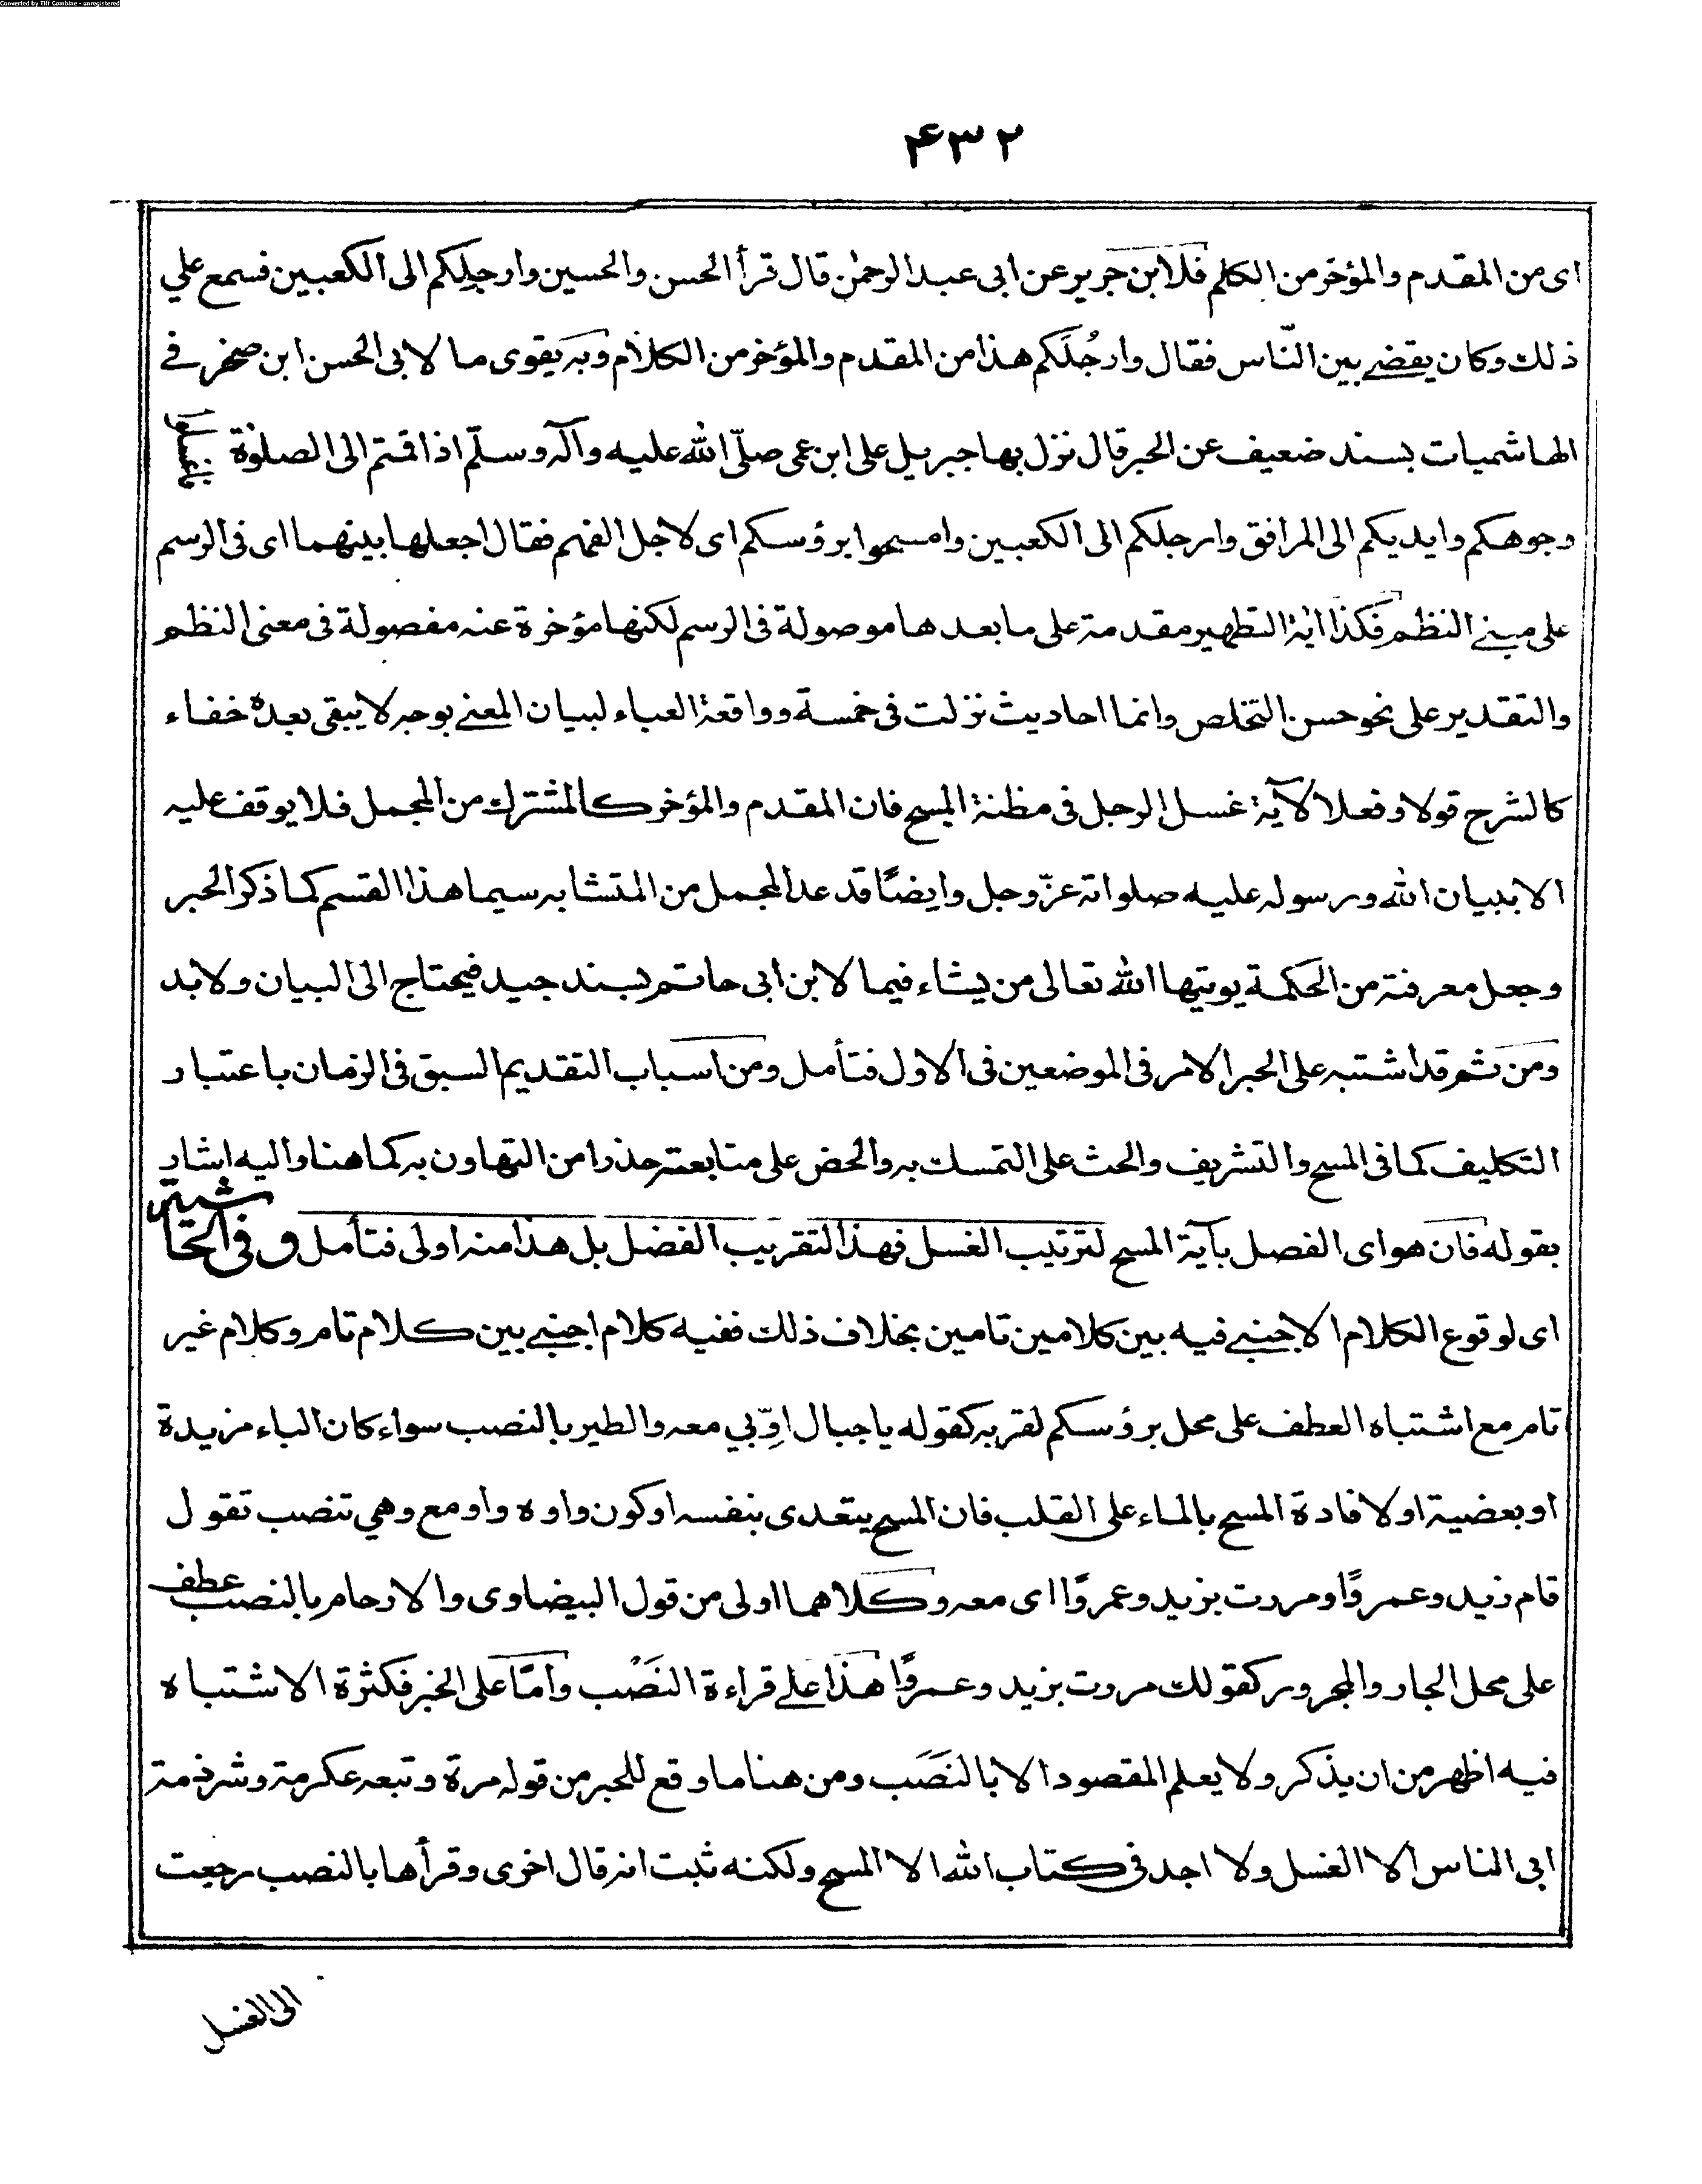 Converted by Tiff Combine - unregistered
۴۳۲
ای من المقدم والمؤخر من الکلم فلابن جریر عن ابی عبد الرحمٰن قال قرأ الحسن والحسین وارجلِکم الی الکعبین فسمع علي
ذلك وکان یقضے بین النّاس فقال وارجُلَکم هذا من المقدم والمؤخر من الکلام وبه یقوی ما لابی الحسن ابن صخر فے
الهاشمیات بسند ضعیف عن الحبر قال نزل بها جبریل علی ابن عمی صلّی الله علیه وآله وسلّم اذا قمتم الی الصلوٰة فاغسلوا
وجوهکم وایدیکم الی المرافق وارجلکم الی الکعبین وامسحوا برؤسکم ای لاجل الفهم فقال اجعلها بینهما ای فی الرسم
علی مبنے النظم فکذا ایة التطهیر مقدمة علی ما بعدها موصولة فی الرسم لکنها مؤخرة عنه مفصولة فی معنی النظم
والتقدیر علی نحو حسن التخلص وانما احادیث نزلت فی خمسة وواقعة العباء لبیان المعنے بوجه لا یبقی بعده خفاء
کالشرح قولا وفعلا لآیة غسل الرجل فی مظنة المسح فان المقدم والمؤخر کالمشترك من المجمل فلا یوقف علیه
الا ببیان الله ورسوله علیه صلواته عزّ وجل وایضًا قد عد المجمل من المتشابه سیما هذا القسم کما ذکر الحبر
وجعل معرفته من الحکمة یوتیها الله تعالی من یشاء فیما لابن ابی حاتم بسند جید فیحتاج الی البیان ولا بد
ومن ثم قد اشتبه علی الحبر الامر فی الموضعین فی الاول فتأمل ومن اسباب التقدیم السبق فی الزمان باعتبار
التکلیف کما فی المسح والتشریف والحث علی التمسك به والحض علی متابعته حذرا من التهاون به کما هنا والیه اشار
بقوله فان هو ای الفصل بآیة المسح لترتیب الغسل فهذا لتقریب الفضل بل هذا منه اولی فتأمل وفی الحاشیة
ای لوقوع الکلام الاجنبے فیه بین کلامین تامین بخلاف ذلك ففیه کلام اجنبے بین کلام تام وکلام غیر
تام مع اشتباه العطف علی محل برؤسکم لقربه کقوله یا جبال اوّبي معه والطیر بالنصب سواء کان الباء مزیدة
او بعضیة او لافادة المسح بالماء علی القلب فان المسح یتعدی بنفسه او کون واوه واو مع وهي تنصب تقول
قام زید وعمروًا ومررت بزید وعمروًا ای معه وکلاهما اولی من قول البیضاوی والارحام بالنصب عطف
علی محل الجار والمجرور کقولك مررت بزید وعمروًا هذا علے قراءة النَصْب وامّا علی الخبر فکثرة الاشتباه
فیه اظهر من ان یذکر ولا یعلم المقصود الا بالنَصَب ومن هنا ما وقع للحبر من قوله مرة وتبعه عکرمة وشرذمة
ابی الناس الا الغسل ولا اجد فی کتاب الله الا المسح ولکنه ثبت انه قال اخری وقرأها بالنصب رجعت
الی الغسل